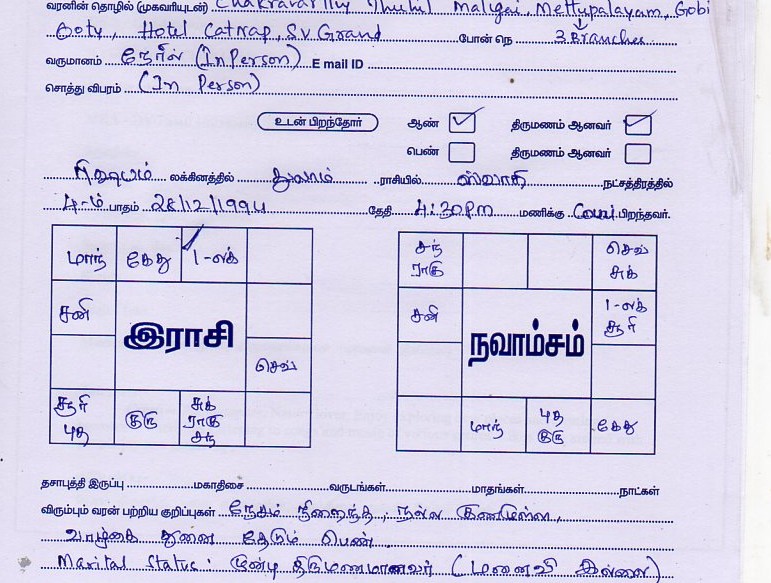 வரனின் தொழில் (முகவரியுடன்) Chakravarthy Thuhil Maligai, Mettupalayam, Gobi
Ooty, Hotel Catnap, S.V. Grand போன் நெ 3 Branches
வருமானம் நேரில் (In Person) E mail ID
சொத்து விபரம் (In Person)
உடன் பிறந்தோர் ஆண் திருமணம் ஆனவர்
பெண் திருமணம் ஆனவர்
ரிஷபம் லக்கினத்தில் துலாம் ராசியில் ஸ்வாதி நட்சத்திரத்தில்
4-ம் பாதம் 28/12/1994 தேதி 4:30Pm மணிக்கு பிறந்தவர்.
மாந் கேது 1-லக்
சனி
இராசி
செவ்
சூரி புத
குரு
சுக் ராகு சந்
சந் ராகு
செவ் சுக்
சனி
1-லக் சூரி
நவாம்சம்
மாந்
புத குரு
கேது
தசாபுத்தி இருப்பு மகாதிசை வருடங்கள் மாதங்கள் நாட்கள்
விரும்பும் வரன் பற்றிய குறிப்புகள் நேசம் நிறைந்த, நல்ல குணமுள்ள,
வாழ்கை துணை தேடும் பெண்.
Marital Status: திருமணமானவர் (மனைவி இல்லை)